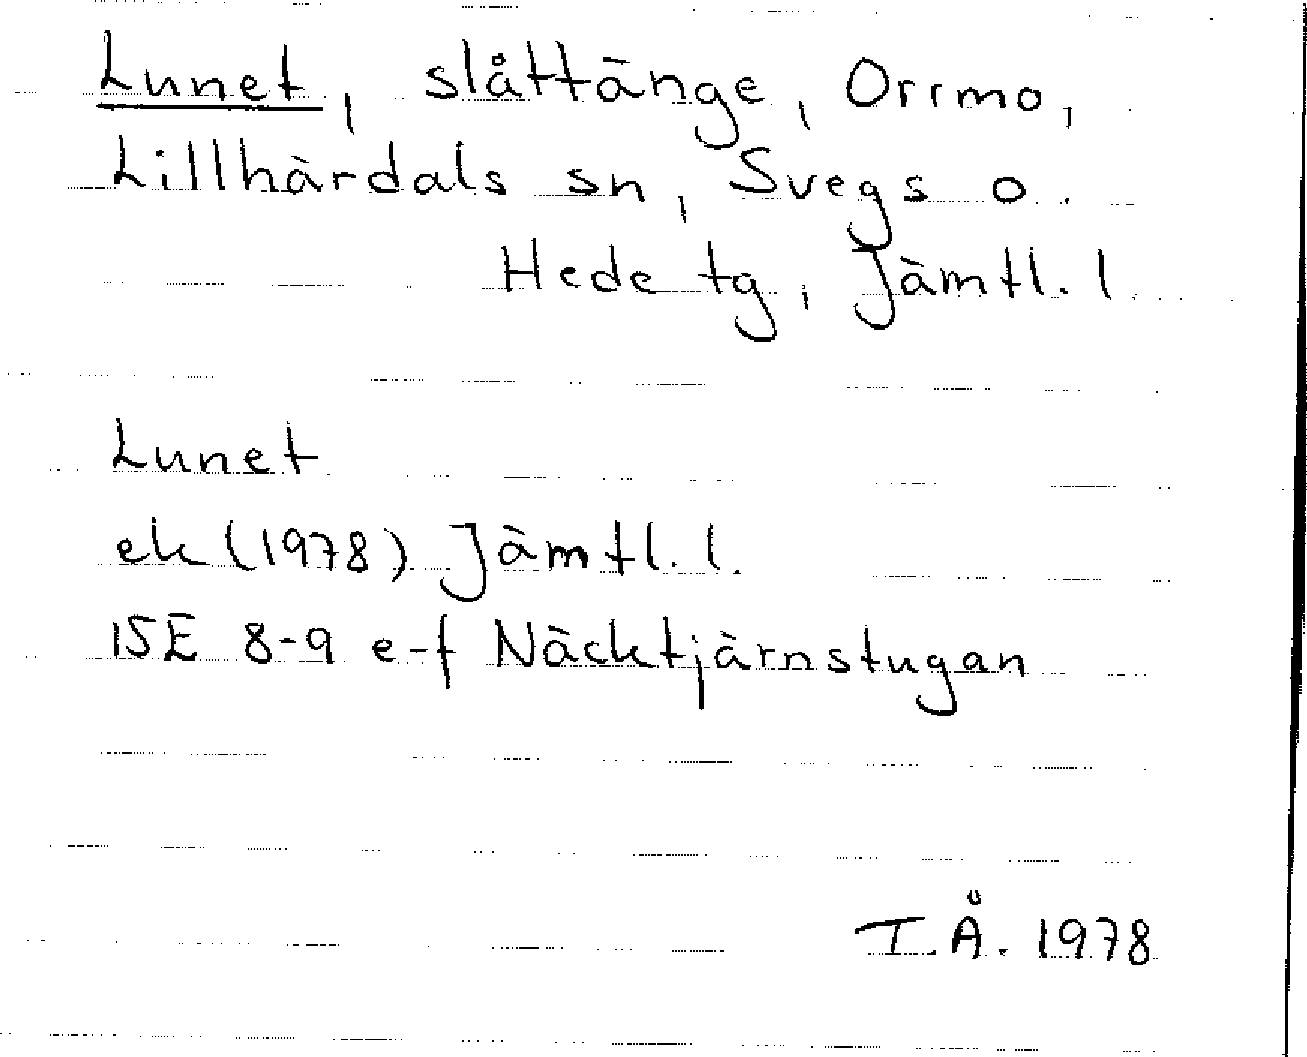 Lunet, slåttänge, Orrmo,
Lillhärdals sn, Svegs o.
Hede tg, Jämtl. l
Lunet
ek (1978) Jämtl. l.
15E 8-9 e-f Näcktjärnstugan
T.Å. 1978